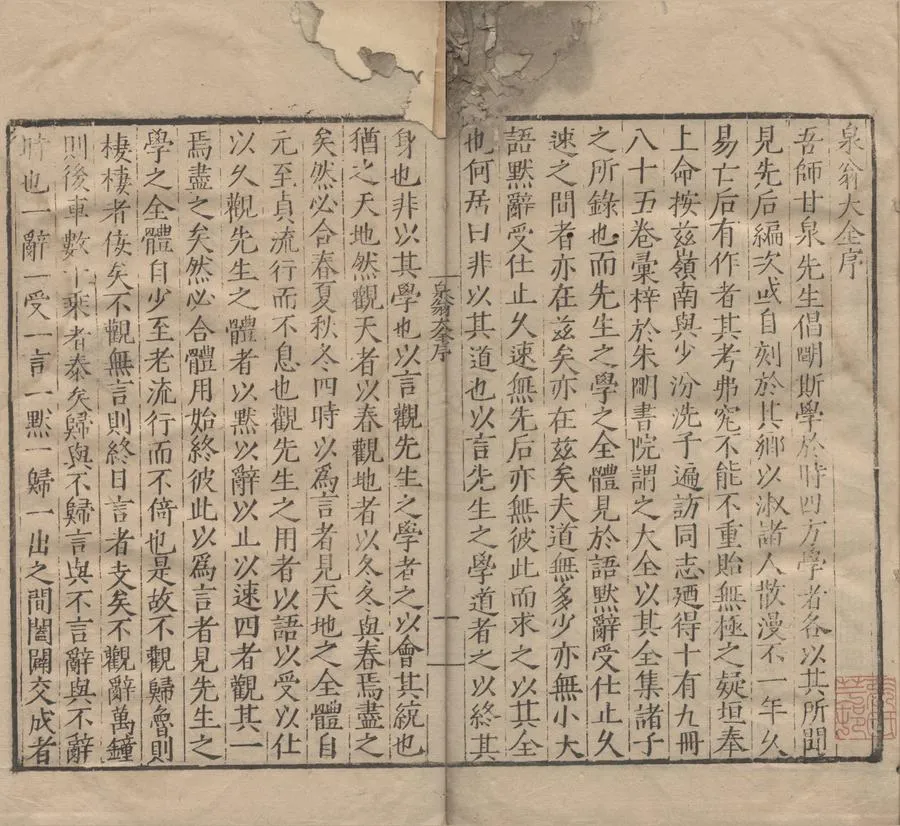 泉翁大全序
吾師甘泉先生倡明斯學於時四方學者各以其所聞
見先后編次或自刻於其鄉以淑諸人散漫不一年久
易亡后有作者其考弗究不能不重貽無極之疑垣奉
上命按茲嶺南與少汾洗子遍訪同志廼得十有九冊
八十五卷彙梓於朱明書院謂之大全以其全集諸子
之所錄也而先生之學之全體見於語黙辭受仕止久
速之間者亦在茲矣亦在茲矣夫道無多少亦無小大
語黙辭受仕止久速無先后亦無彼此而求之以其全
也何居曰非以其道也以言先生之學道者之以終其
泉翁大全序 一
身也非以其學也以言觀先生之學者之以會其統也
猶之天地然觀天者以春觀地者以冬冬與春焉盡之
矣然必合春夏秋冬四時以爲言者見天地之全體自
元至貞流行而不息也觀先生之用者以語以受以仕
以久觀先生之體者以黙以辭以止以速四者觀其一
焉盡之矣然必合體用始終彼此以爲言者見先生之
學之全體自少至老流行而不倚也是故不觀歸魯則
棲棲者佞矣不觀無言則終日言者支矣不觀辭萬鐘
則後車數十乘者泰矣歸與不歸言與不言辭與不辭
時也一辭一受一言一黙一歸一出之間闔闢交成者